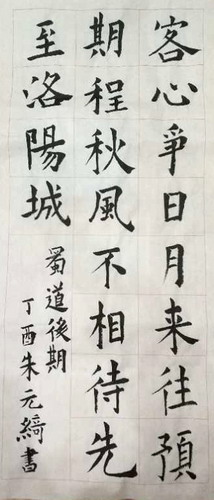 客心爭日月来往預
期程秋風不相待先
至洛陽城
蜀道後期
丁酉朱元綺書